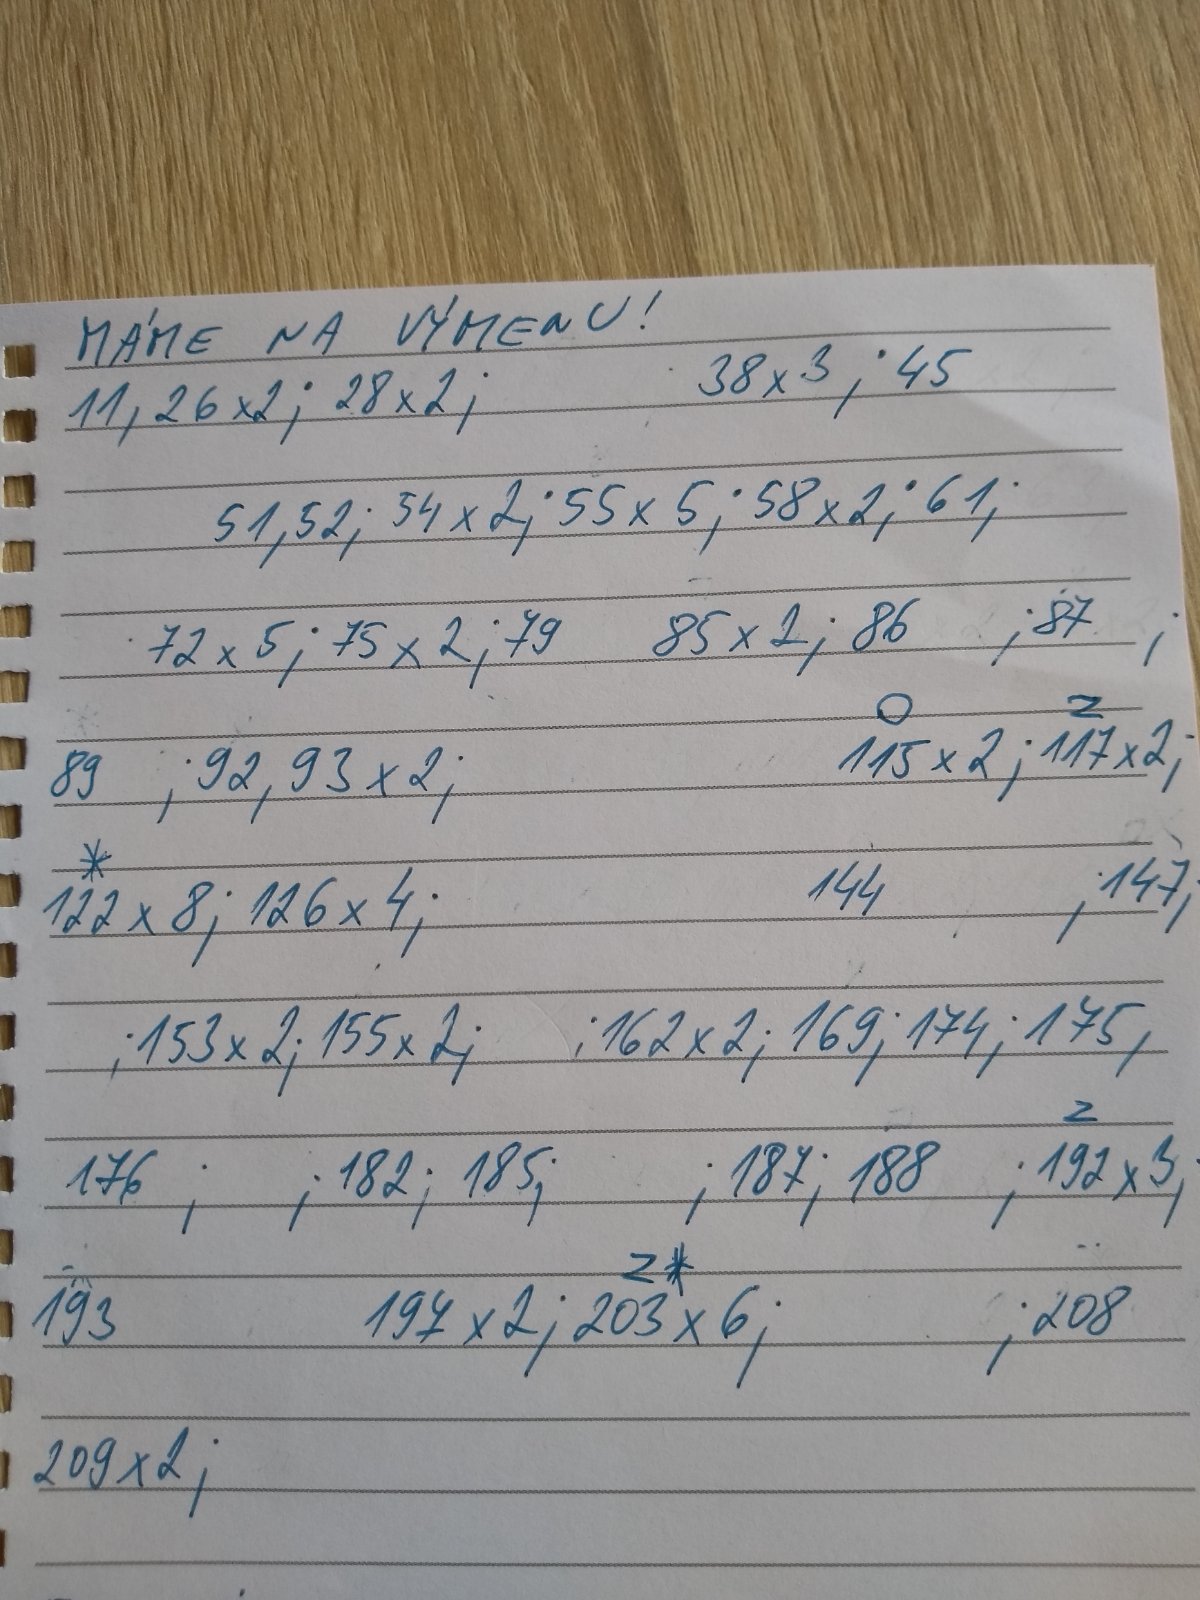 MÁME NA VÝMENU!
11, 26 x 2; 28 x 2; 38 x 3; 45
51, 52; 54 x 2; 55 x 5; 58 x 2; 61;
72 x 5; 75 x 2; 79 85 x 2; 86 ; 87 ;
O Z
89 ; 92, 93 x 2; 115 x 2; 117 x 2;
*
122 x 8; 126 x 4; 144 ; 147;
; 153 x 2; 155 x 2; ; 162 x 2; 169; 174; 175,
Z
176 ; ; 182; 185; ; 187; 188 ; 192 x 3;
Z *
193 197 x 2; 203 x 6; ; 208
209 x 2;